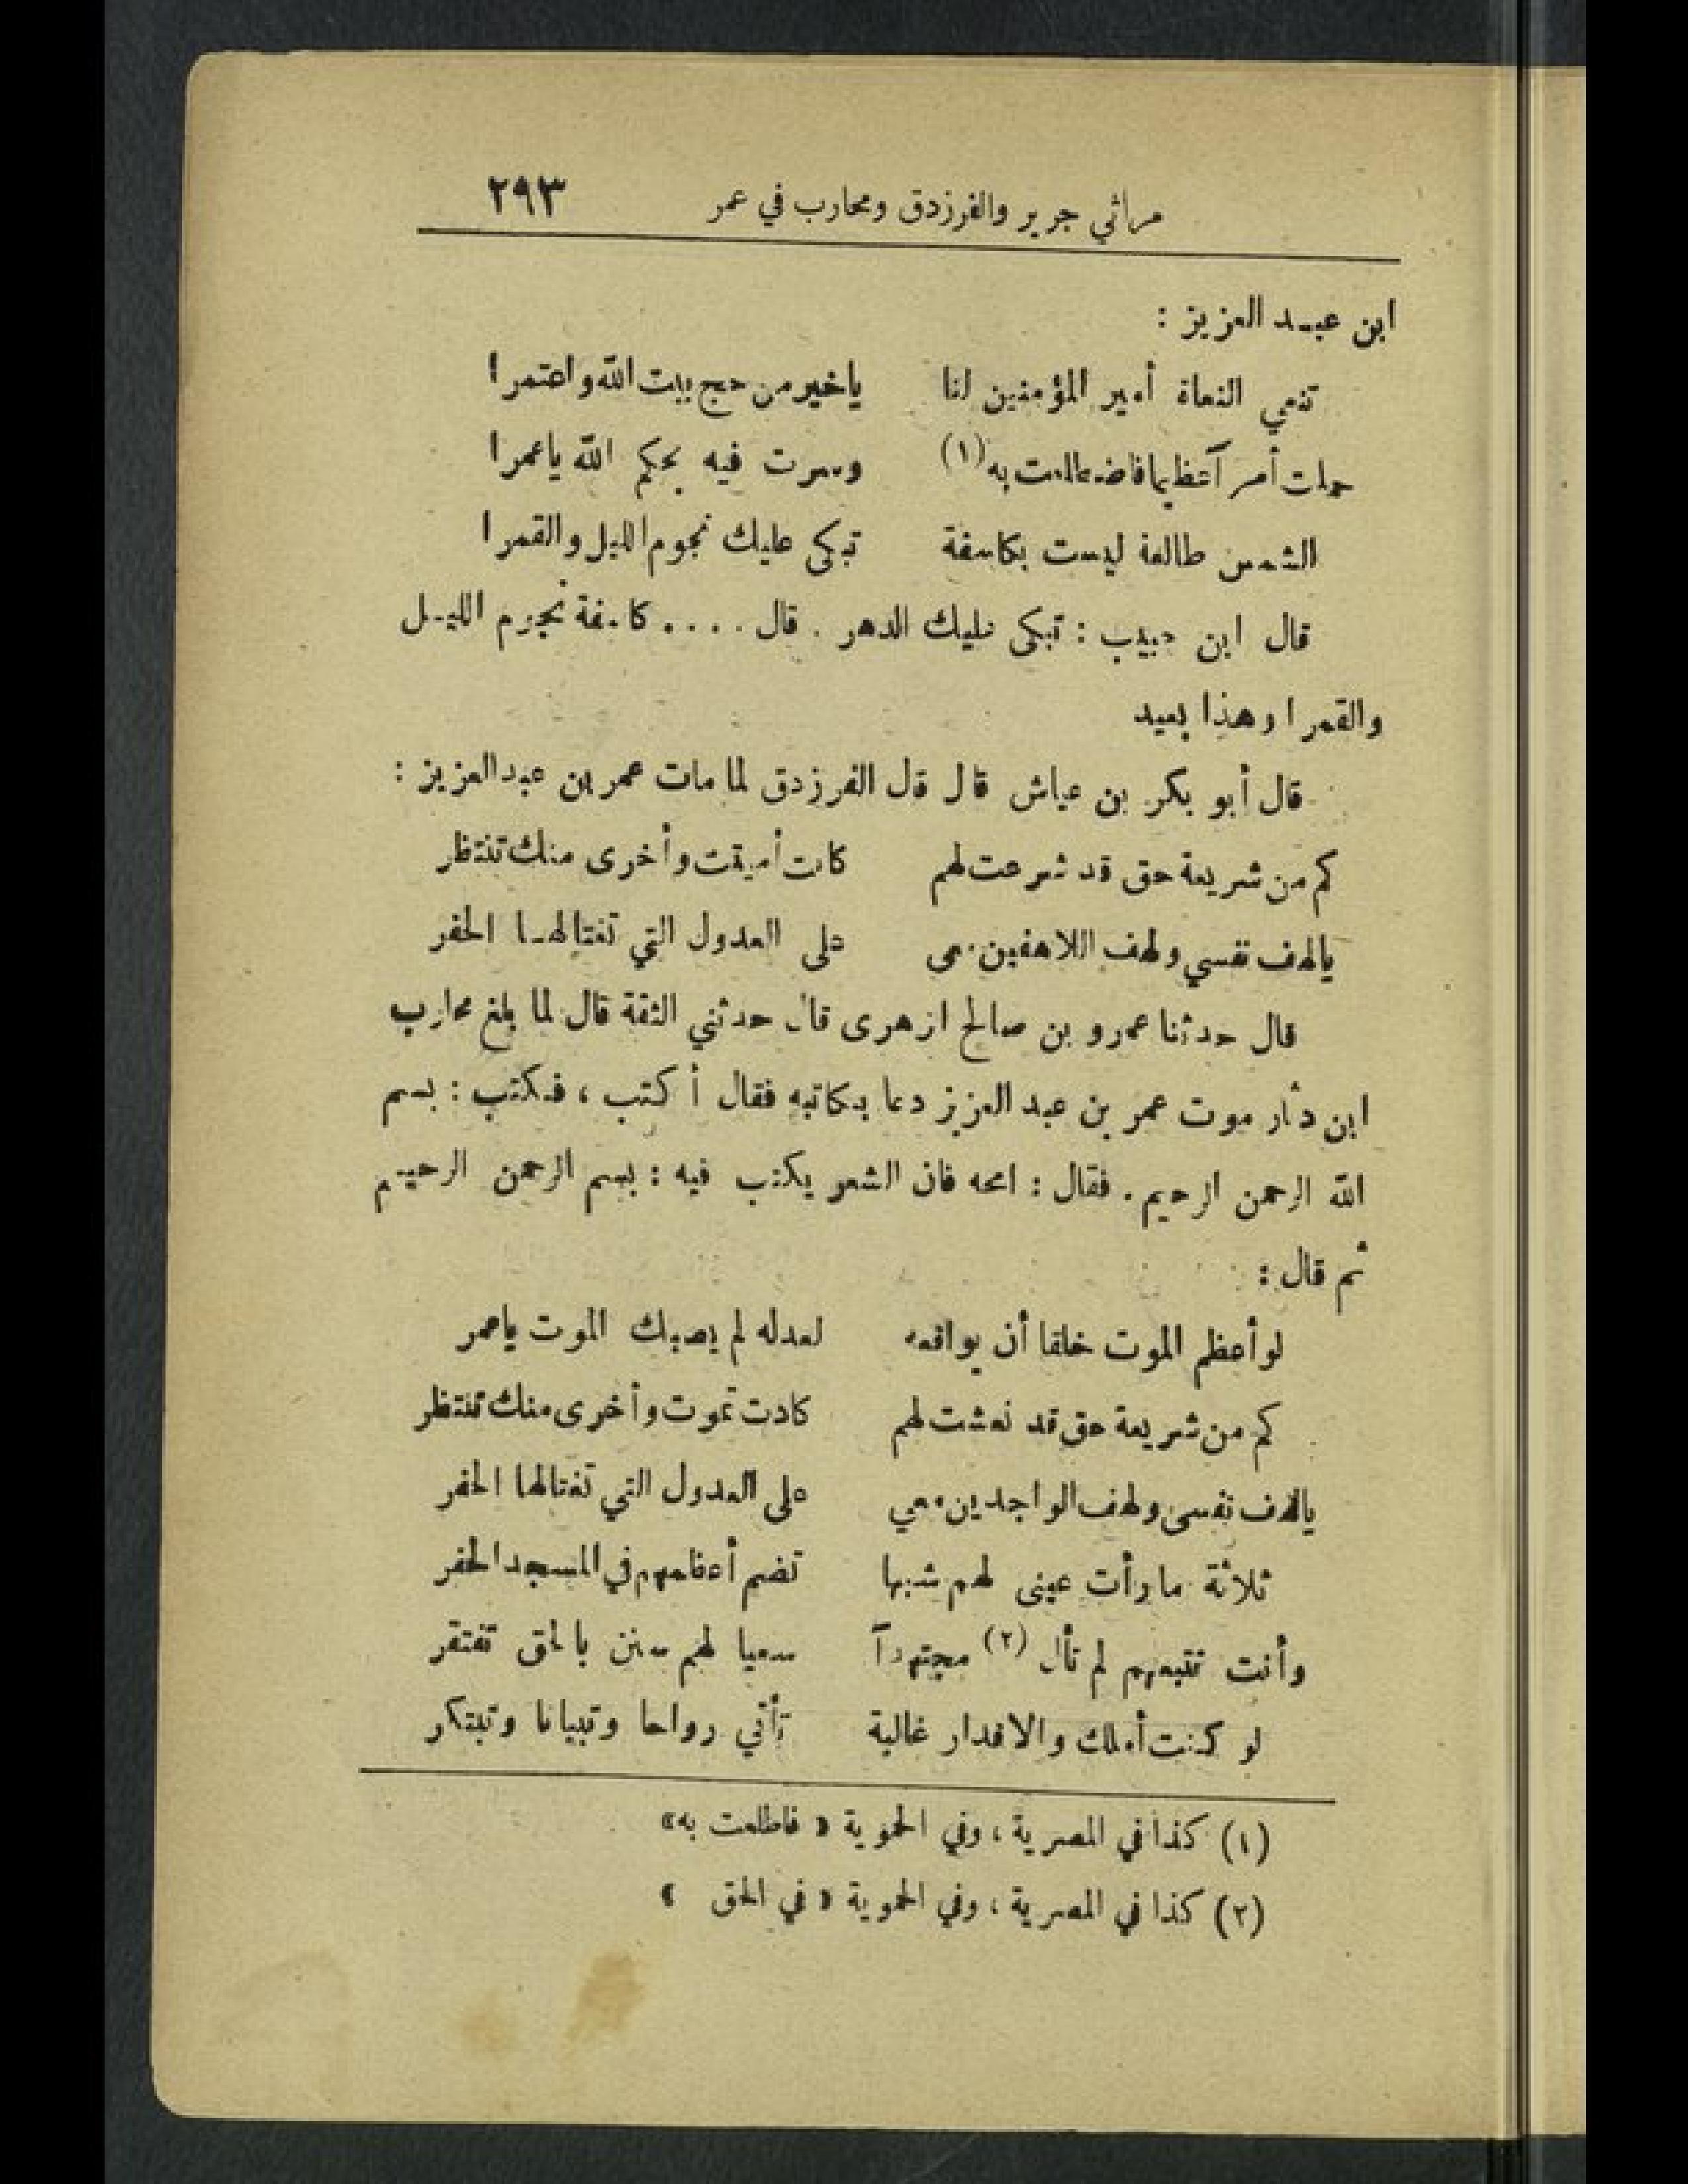 مراثي جرير والفرزدق ومحارب في عمر ٢٩٣
ابن عبد العزيز :
تنعي النعاة أمير المؤمنين لنا ياخير من حج بيت الله واعتمرا
حملت أمراً عظيما فاضطلعت به (١) وسرت فيه بحكم الله ياعمرا
الشمس طالعة ليست بكاسفة تبكى عليك نجوم الليل والقمرا
قال ابن حبيب : تبكى عليك الدهر . قال .... كاسفة نجوم الليل
والقمرا وهذا بعيد
قال أبو بكر بن عياش قال قال الفرزدق لما مات عمر بن عبد العزيز :
كم من شريعة حق قد شرعت لهم كانت أميتت وأخرى منك تنتظر
يالهف نفسي ولهف اللاهفين معى على العدول التي تغتالها الحفر
قال حدثنا عمرو بن صالح ازهرى قال حدثني الثقة قال لما بلغ محارب
ابن دثار موت عمر بن عبد العزيز دعا بكاتبه فقال أكتب ، فكتب : بسم
الله الرحمن الرحيم . فقال : امحه فان الشعر يكتب فيه : بسم الرحمن الرحيم
ثم قال :
لو أعظم الموت خلقا أن يواقعه لعدله لم يصبك الموت ياعمر
كم من شريعة حق قد نعشت لهم كادت تموت وأخرى منك تنتظر
يالهف نفسى ولهف الواجدين معي على العدول التي تغتالها الحفر
ثلاثة مارأت عينى لهم شبها تضم أعظامهم في المسجد الحفر
وأنت تتبعهم لم تأل (٢) مجتهداً سعيا لهم سنن بالحق تفتقر
لو كنت أملك والاقدار غالبة تأتي رواحا وتبيانا وتبتكر
(١) كذا في المصرية ، وفي الحموية « فاطلعت به »
(٢) كذا في المصرية ، وفي الحموية « في الحق »